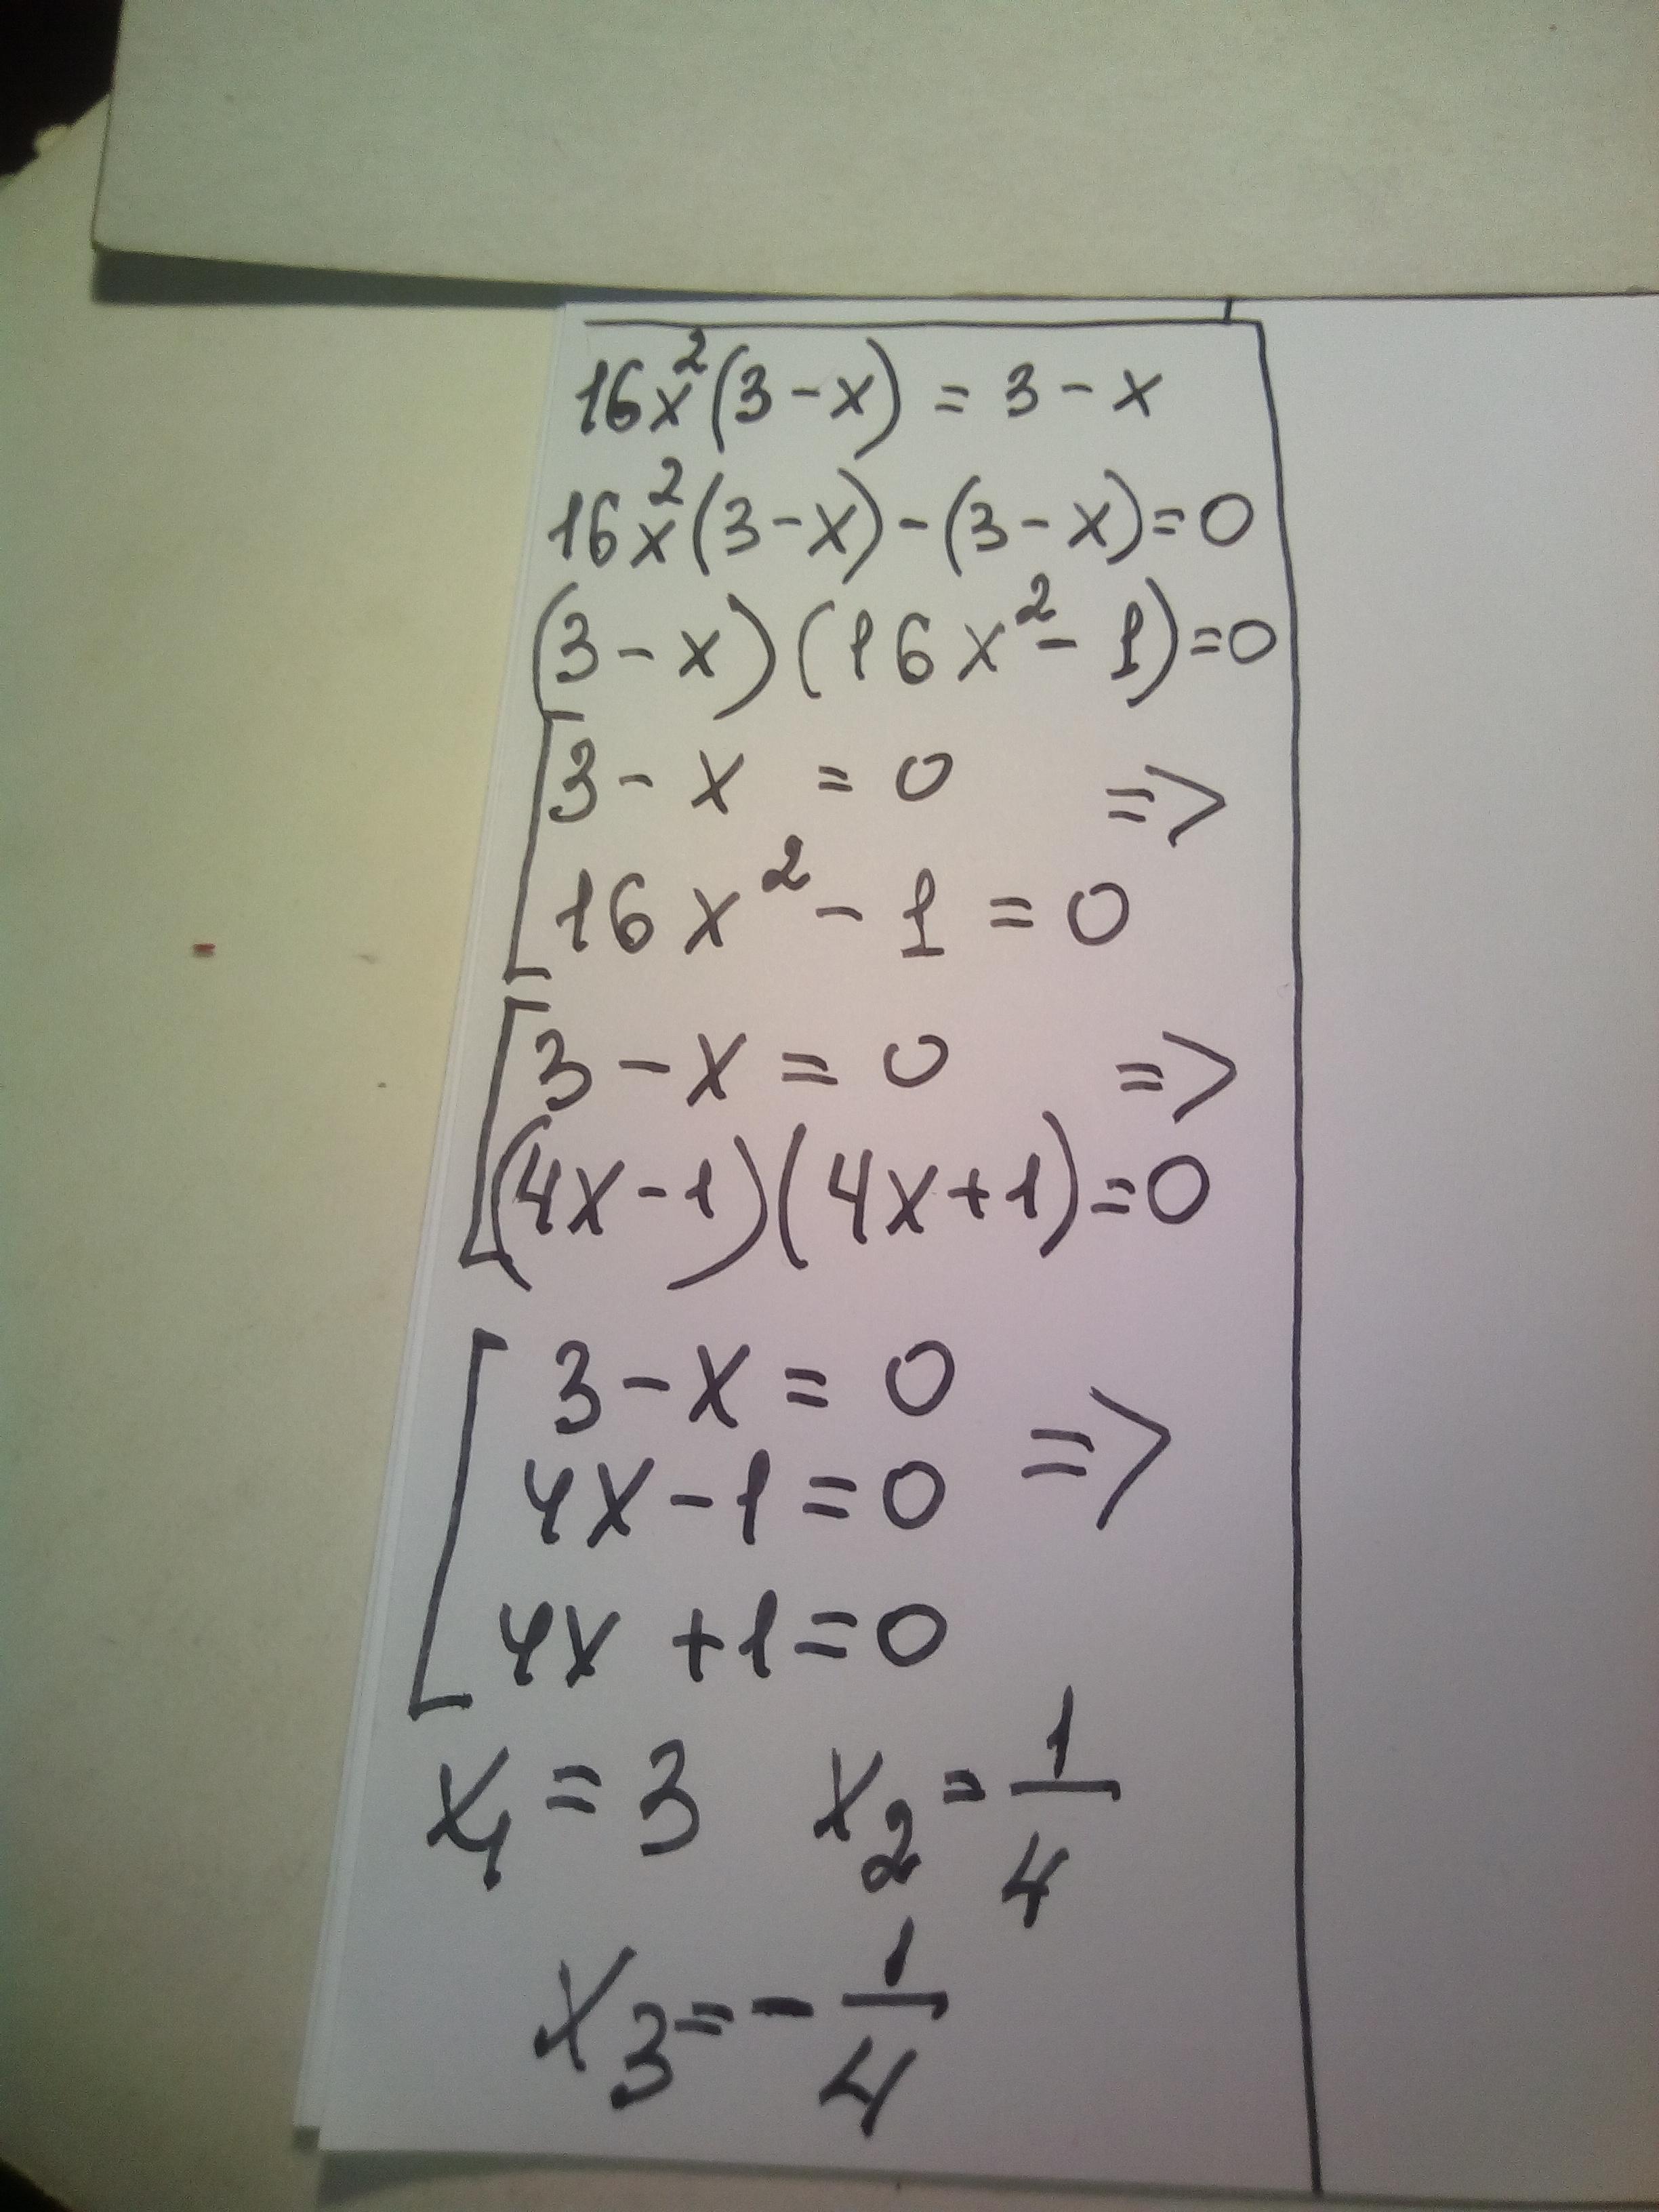 16x²(3-x) = 3-x
16x²(3-x)-(3-x)=0
(3-x)(16x²-1)=0
3-x = 0 =>
16x²-1=0
3-x=0 =>
(4x-1)(4x+1)=0
3-x=0
4x-1=0 =>
4x+1=0
x₁=3 x₂=1/4
x₃=-1/4